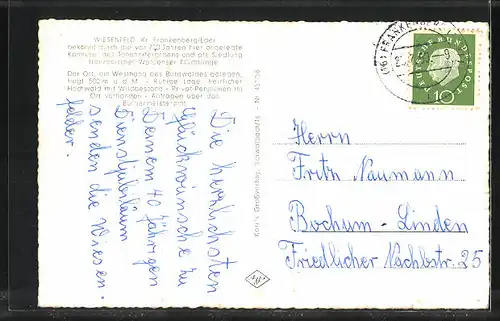 WIESENFELD Kr. Frankenberg/Eder
bekannt durch die vor 700 Jahren hier angelegte
Komturei des Johanniterordens und als Siedlung
französischer Waldenser Flüchtlinge
Der Ort, am Westhang des Burgwaldes gelegen,
liegt 500m ü. d. M. - Ruhige Lage - Herrlicher
Hochwald mit Wildbestand - Privat-Pensionen im
Ort vorhanden - Anfragen über das
Bürgermeisteramt
Die herzlichsten
Glückwünsche zu
Deinem 40 jährigen
Dienstjubiläum
senden die Wiesen-
felder.
(16) FRANKENBERG
DEUTSCHE BUNDESPOST
10
Herrn
Fritz Naumann
Bochum-Linden
Friedlicher Nachbstr. 25